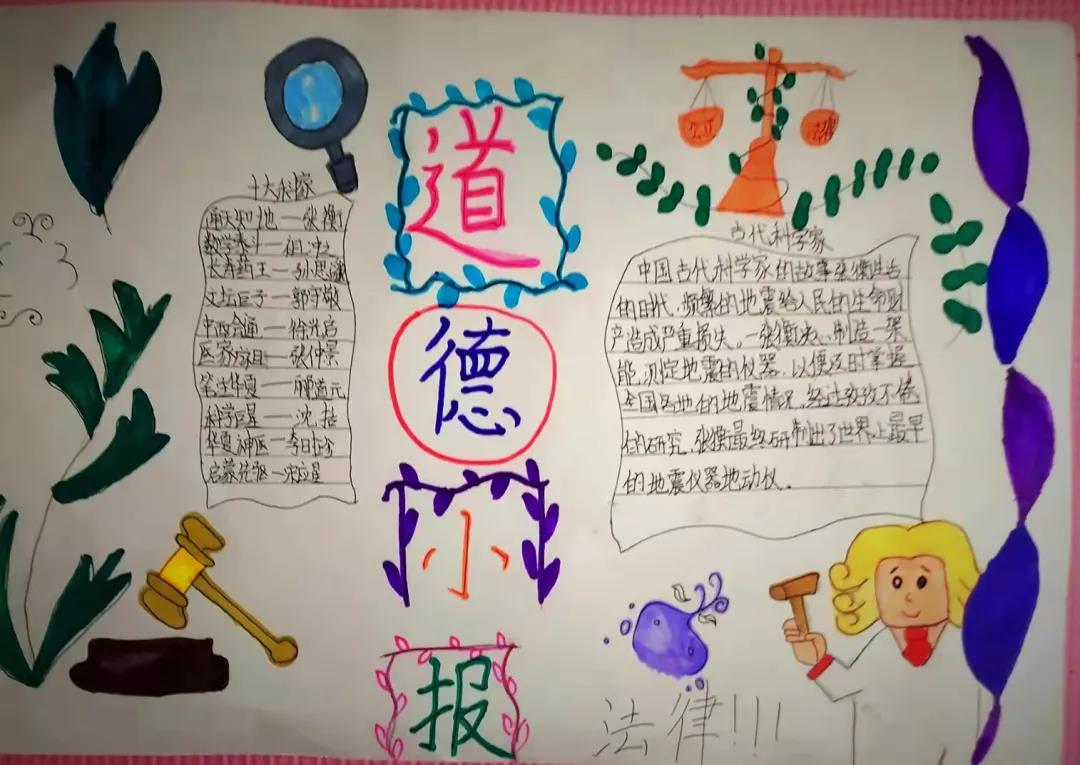 十大科家
通天知地一张衡
数学泰斗一祖冲之
长寿药王一孙思邈
文坛巨子一郭守敬
中西会通一徐光启
医家宗祖一张仲景
笔注华夏一郦道元
科学巨星一沈括
华夏神医一李时珍
启蒙先驱一宋应星
道
德
小
报
公正
法律
古代科学家
中国古代科学家的故事张衡生活
的时代,频繁的地震给人民的生命财
产造成严重损失。一张衡决心制造一架
能测定地震的仪器,以便及时掌握
全国各地的地震情况,经过孜孜不倦
的研究,张衡最终研制出了世界上最早
的地震仪器地动仪。
法律!!!